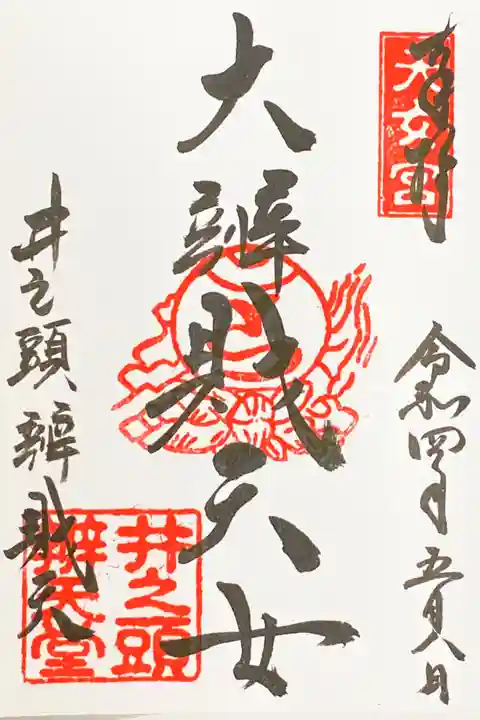 奉拝
天女宮
令和四年五月八日
大辨財天女
井之頭辨財天
井之頭
辨天堂